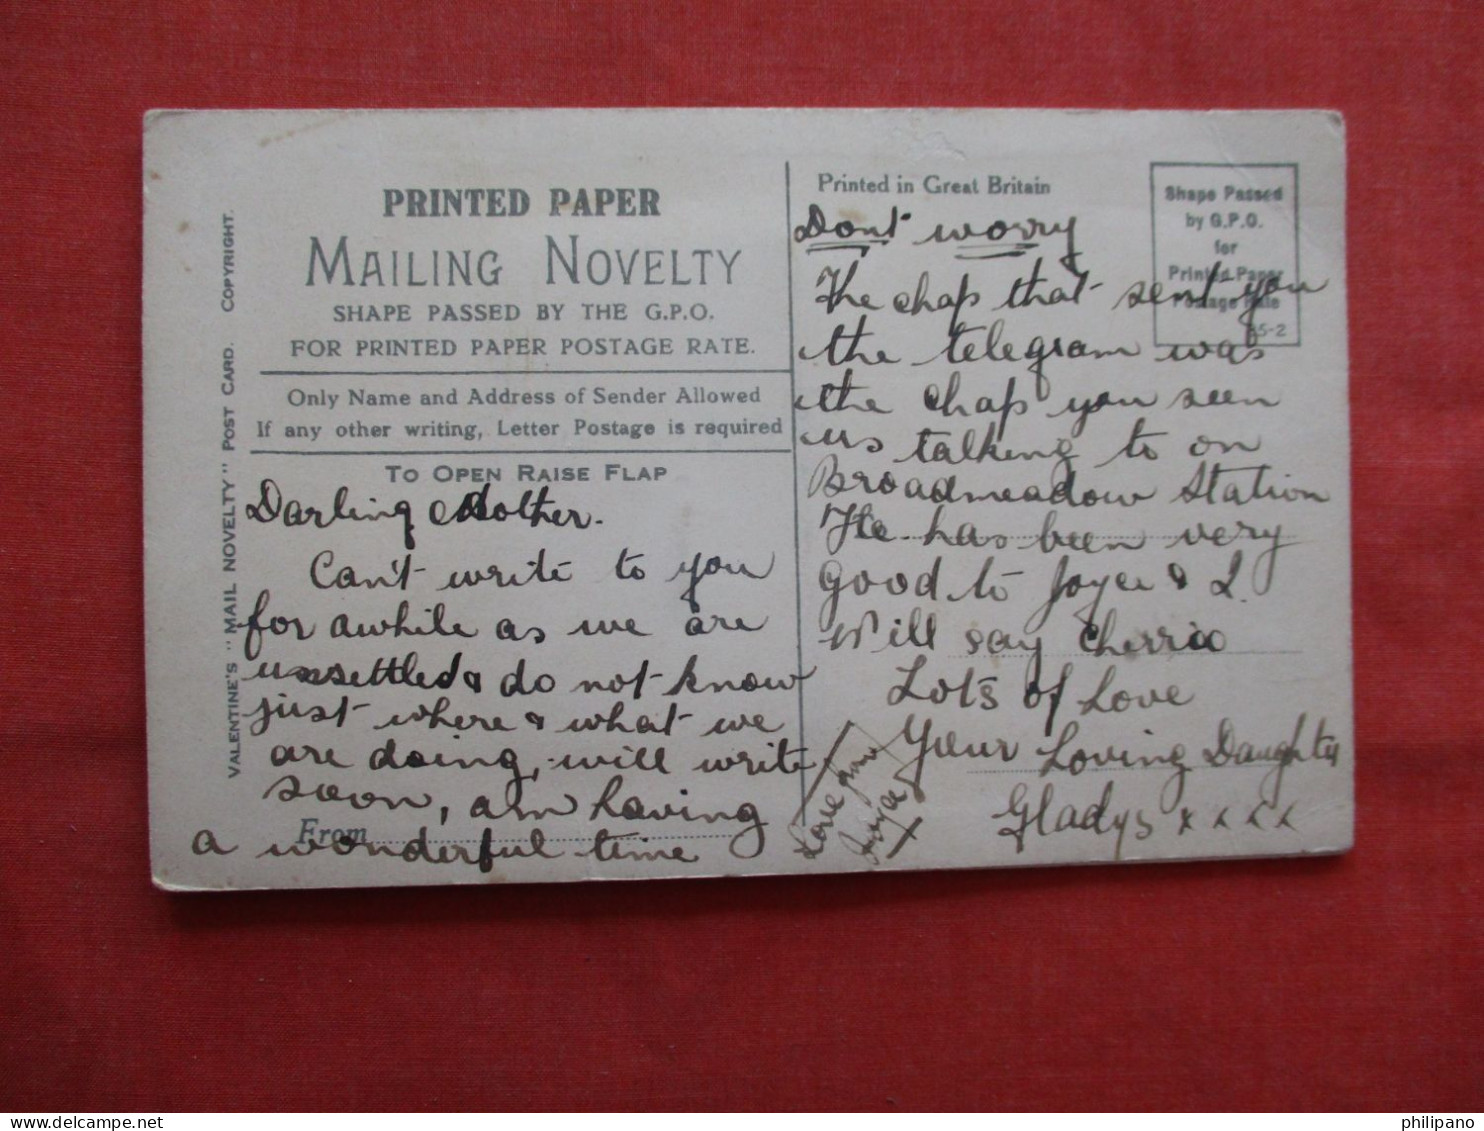 VALENTINE'S "MAIL NOVELTY" POST CARD. COPYRIGHT.
PRINTED PAPER
MAILING NOVELTY
SHAPE PASSED BY THE G.P.O.
FOR PRINTED PAPER POSTAGE RATE.
Only Name and Address of Sender Allowed
If any other writing, Letter Postage is required
TO OPEN RAISE FLAP
Darling Mother.
Can't write to you
for awhile as we are
unsettled & do not know
just where & what we
are doing, will write
soon, am having
From
a wonderful time
Printed in Great Britain
Shape Passed
by G.P.O.
for
Printed Paper
Postage Rate
85-2
Dont worry
The chap that sent you
the telegram was
the chap you seen
us talking to on
Broadmeadow Station
He has been very
good to Joyce & I.
Will say cherrio
Lots of Love
Your Loving Daughter
Gladys x x x x
Love from
Joyce
x
philipano